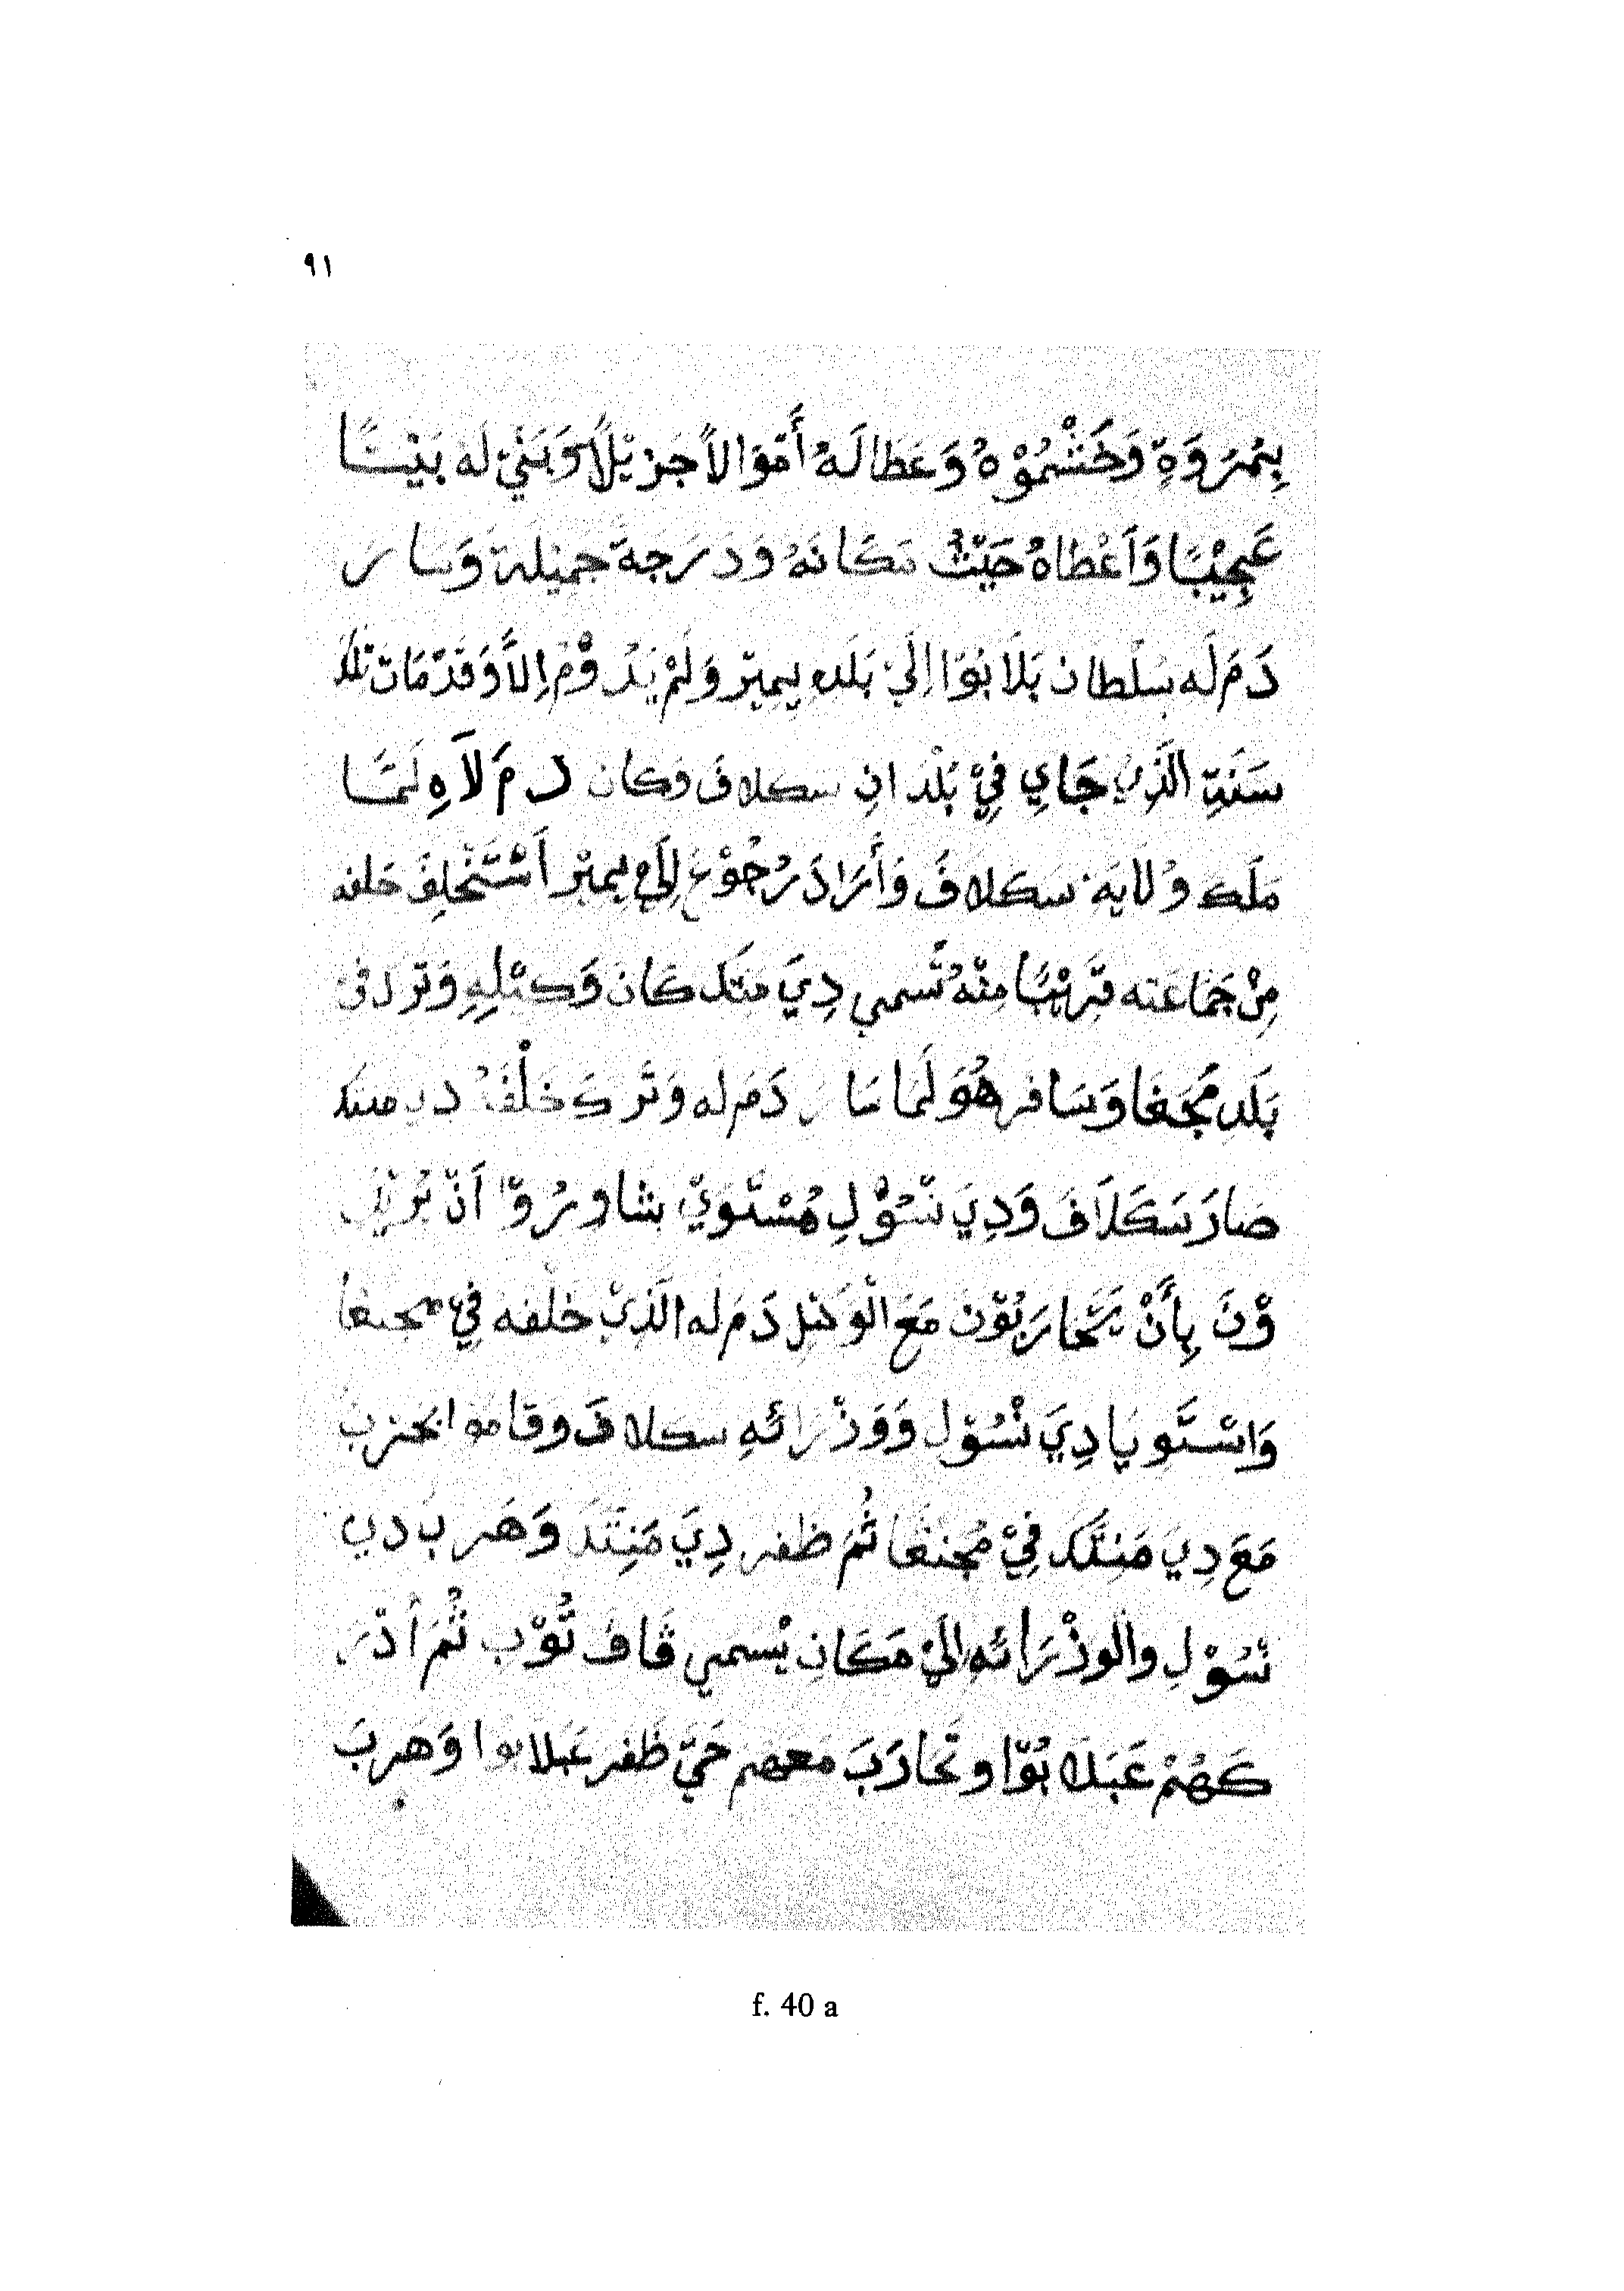 ٩١
بِمُرَوَةِ وَخَشْمُوْهُ وَعَطَالَهُ أَمْوَالاً جَزِيْلاً وَبَنَيْ لَهُ بَيْتًا
عَجِيْبًا وَاَعْطَاهُ حَيْثُ مَكَانَهُ وَدَرَجَةً جَمِيْلَة وَسَارَ
دَمَ لَه سُلْطَان بَلَابُوَا اِلَيْ بَلَدِ بِمِيْرِ وَلَمْ يَدُوْمُ اِلاَّ وَقَدْ مَاتَ تلك
سَنَةِ الَّذِيْ جَاي فِيْ بُلْدَانِ سكلاف وَكان دَمَ لَاهِ لَمَّا
مَلَك وُلَايَة سكلافَ وَأَرَادَ رُجُوْعَ اِلَي بِمِيْرِ اَسْتَخْلِفَ خلفه
مِنْ جَمَاعَتِه قَرِيْبًا مِنْهُ تُسَمي دِيَ مَنِتَك كَانَ وَكِيْلِهِ وَتَرَك في
بَلَدِ مُجَنغَا وَسَافر هُوَ لَمَا سَارَ دَمَ له وَتَرَكَ خَلْفَهُ دي منتك
صَارَ سَكَلَافَ وَدِيَ نَسُوْلِ مُسْتَوِيْ شَاوِرُوْا اَنْ
وْنَ بِأَنْ يَتَحارَبُوْنَ مَعَ الْوَكِيْل دَمَ له الَّذِيْ خلْفه فِيْ مجنغا
وَاسْتَو يَا دِيَ نْسُوْلِ وَوَزْرَائهِ سكلافَ وقاموا بحزبِ
مَعَ دِيَ مَنِتَك فِيْ مُجَنغَا ثُمَ ظفر دِيَ مَنِتَك وَهَربَ دي
نَسُوْلِ والوزْرَائهِ اِلَيْ مَكَانٍ يُسَمي فَافَ تُوْبِ ثُمَ اَدْرَ
كَهُمْ عَبَلَا بُوّا وتَحَارَبَ معهم حَيّ ظَفر عَبلَابوا وَهَرِبَ
f. 40 a